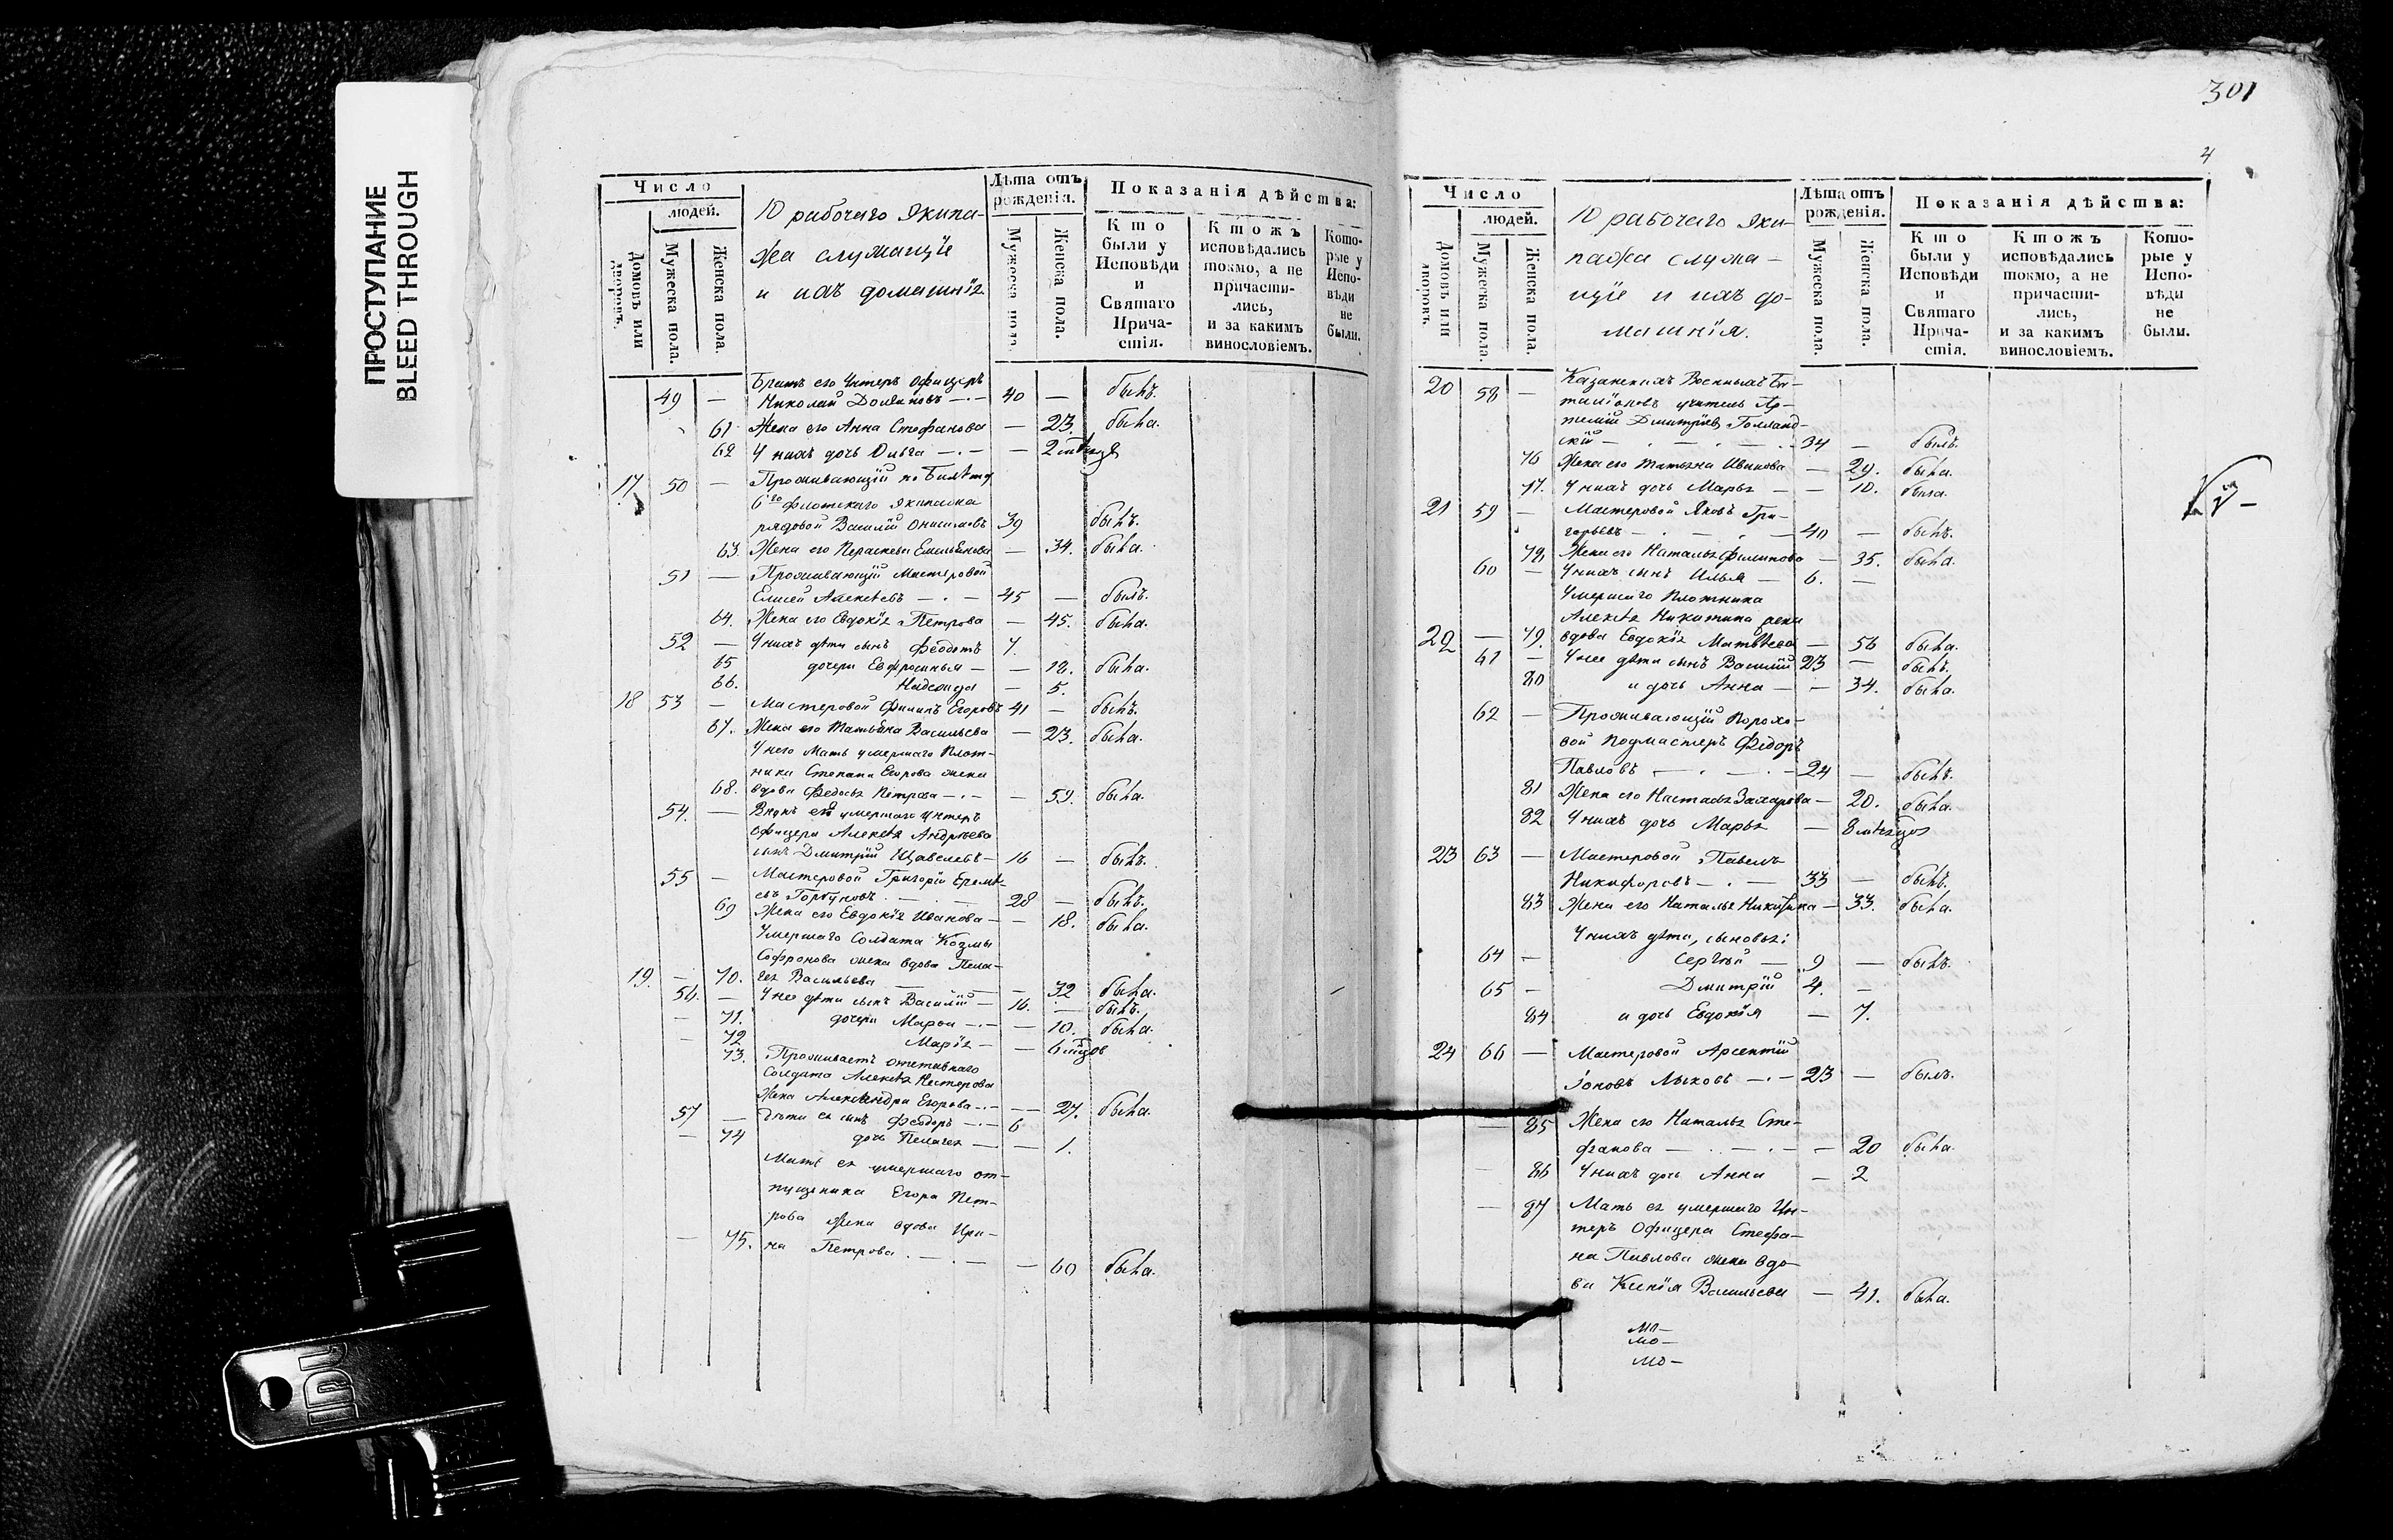 ПРОСТУПАНИЕ
BLEED THROUGH
Число
людей.
Домовъ или дворовъ.
Мужеска пола.
Женска пола.
10 рабочаго Экипа-
жа служащіе
и ихъ домашнія
Лѣта отъ рожденія.
Мужеска пола.
Женска пола.
Показанія дѣйства:
Кто были у Исповѣди и Святаго Прича- стія.
Ктожъ исповѣдались токмо, а не причасти- лись, и за какимъ винословіемъ.
Кото- рые у Испо- вѣди не были.
Братъ его Унтеръ Офицеръ
49 — Николай — 40 — былъ.
61 Жена его Анна Стефанова — 23. была.
62 У нихъ дочь Ольга — — 2 мѣсяцъ
17 50 — Проживающій по Билету
6го флотскаго Экипажа
рядовой Василій Онисимовъ 39 былъ.
63. Жена его Параскева Емельянова — 34. была.
51 — Проживающій Мастеровой
Елисей Алексѣевъ — 45 — былъ.
64. Жена его Евдокія Петрова — 45. была.
52 — У нихъ дѣти сынъ Феодотъ 7.
65 дочери Евфросинья — — 12. была.
66. Надежда — 5.
18 53 — Мастеровой Филипъ Егоровъ 41 — былъ.
67. Жена его Татьяна Васильева — 23. была.
У него Мать умершаго Плот-
ника Степана Егорова жена
68. вдова Федосья Петрова — — 59. была.
54. — Внукъ ея умершаго унтеръ
офицера Алексѣя Андреева
сынъ Дмитрій — 16 — былъ.
55 — Мастеровой Григорій Еремѣ-
евъ Горбуновъ 28 — былъ.
69 Жена его Евдокія Иванова — — 18. была.
Умершаго Солдата Козмы
Софронова жена вдова Пела-
19. — 70. гея Васильева — — 32 была.
56. — У нее дѣти сынъ Василій — 16. — былъ.
— 71. дочери Марѳа — — 10. была.
— 72 Марія — — 6 мцовъ
73. Проживаетъ отставнаго
Солдата Алексѣя Нестерова
Жена Александра Егорова — — 27. была.
57 — Дѣти ея сынъ Феодоръ — 6
— 74 дочь Пелагея — — 1.
Мать ея умершаго от-
пущеника Егора Пет-
рова жена вдова Ири-
— 75. на Петрова — — 60 была.
301
4
Число
людей.
Домовъ или дворовъ.
Мужеска пола.
Женска пола.
10 рабочаго Эки-
пажа служа-
щіе и ихъ до-
машнія.
Лѣта отъ рожденія.
Мужеска пола.
Женска пола.
Показанія дѣйства:
Кто были у Исповѣди и Святаго Прича- стія.
Ктожъ исповѣдались токмо, а не причасти- лись, и за какимъ винословіемъ.
Кото- рые у Испо- вѣди не были.
20 58 — Казанскихъ Военныхъ Ба-
таліоновъ учитель Ар-
темій Дмитріевъ Голланд-
скій — 34 — былъ.
76 Жена его Татьяна Иванова — 29. была.
77. У нихъ дочь Марья — — 10. была.
21 59 — Мастеровой Яковъ Гри-
горьевъ — 40 — былъ.
78 Жена его Наталья Филипова — 35. была.
60 — У нихъ сынъ Илья — 6. —
Умершаго Плотника
Алексѣя Никитина жена
22 — 79. вдова Евдокія Матвѣева — 56 была.
61 — У нее дѣти сынъ Василій 23 — былъ.
80 и дочь Анна — — 34. была.
62 — Проживающій Порохо-
вой Подмастеръ Федоръ
Павловъ — 24 — былъ.
81 Жена его Настасья Захарова — 20. была.
82 У нихъ дочь Марья — 8 мѣсяцов
23 63 — Мастеровой Павелъ
Никифоровъ — 33 — былъ.
83 Жена его Наталья Никитина — 33. была.
У нихъ дѣти, сыновья:
64 — Сергѣй — 9 — былъ.
65 — Дмитрій 4. —
84 и дочь Евдокія — 7.
24 66 — Мастеровой Арсентій
Іоновъ Лыковъ — 23 — былъ.
— 85 Жена его Наталья Сте-
фанова — — 20 была.
— 86 У нихъ дочь Анна — 2
— 87 Мать ея умершаго Ун-
теръ Офицера Стефа-
на Павлова жена вдо-
ва Ксенія Васильева — 41. была.